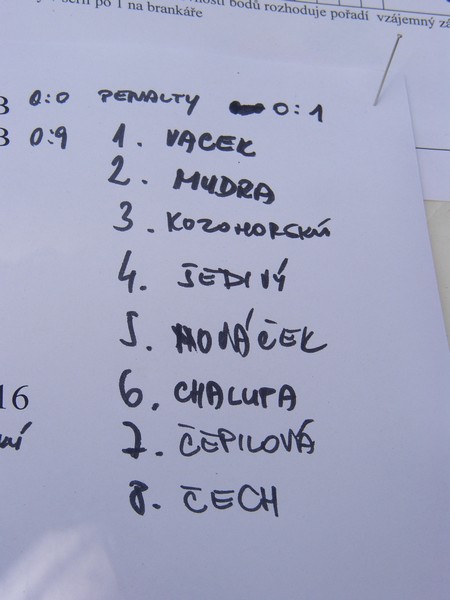 po 1 na brankáře
bodů rozhoduje pořadí vzájemný
B 0:0 PENALTY 0:1
B 0:9 1. VACEK
2. MUDRA
3. KOZOHORSKÝ
4. ŠEDIVÝ
5. NOVÁČEK
6. CHALUPA
16
7. ČEPILOVÁ
8. ČECH